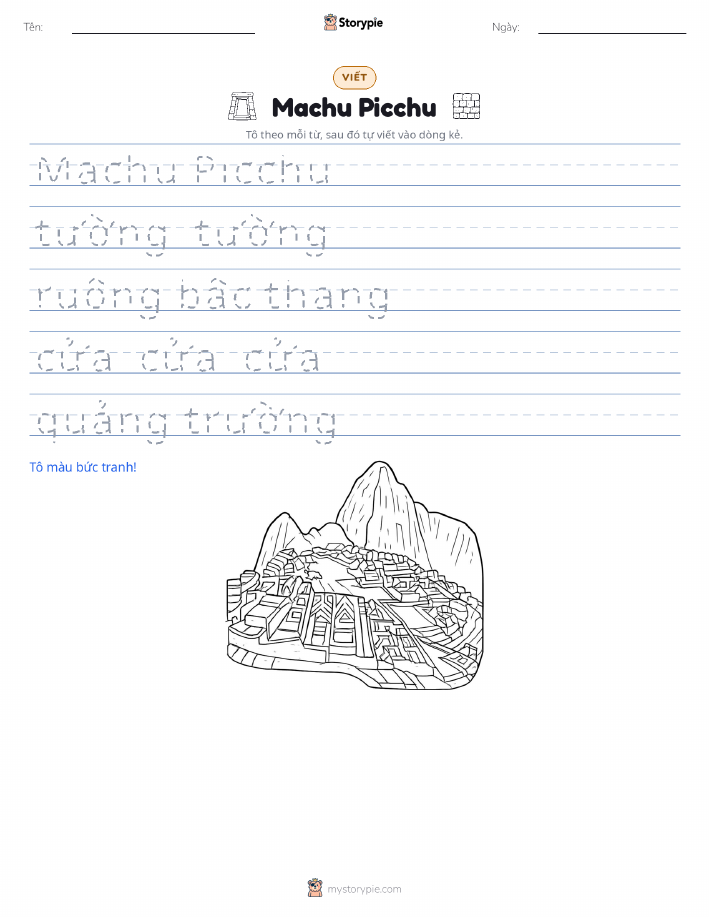 Tên:
Storypie
Ngày:
VIẾT
Machu Picchu
Tô theo mỗi từ, sau đó tự viết vào dòng kẻ.
Machu Picchu
tường tường
ruộng bậc thang
cửa cửa cửa
quảng trường
Tô màu bức tranh!
mystorypie.com